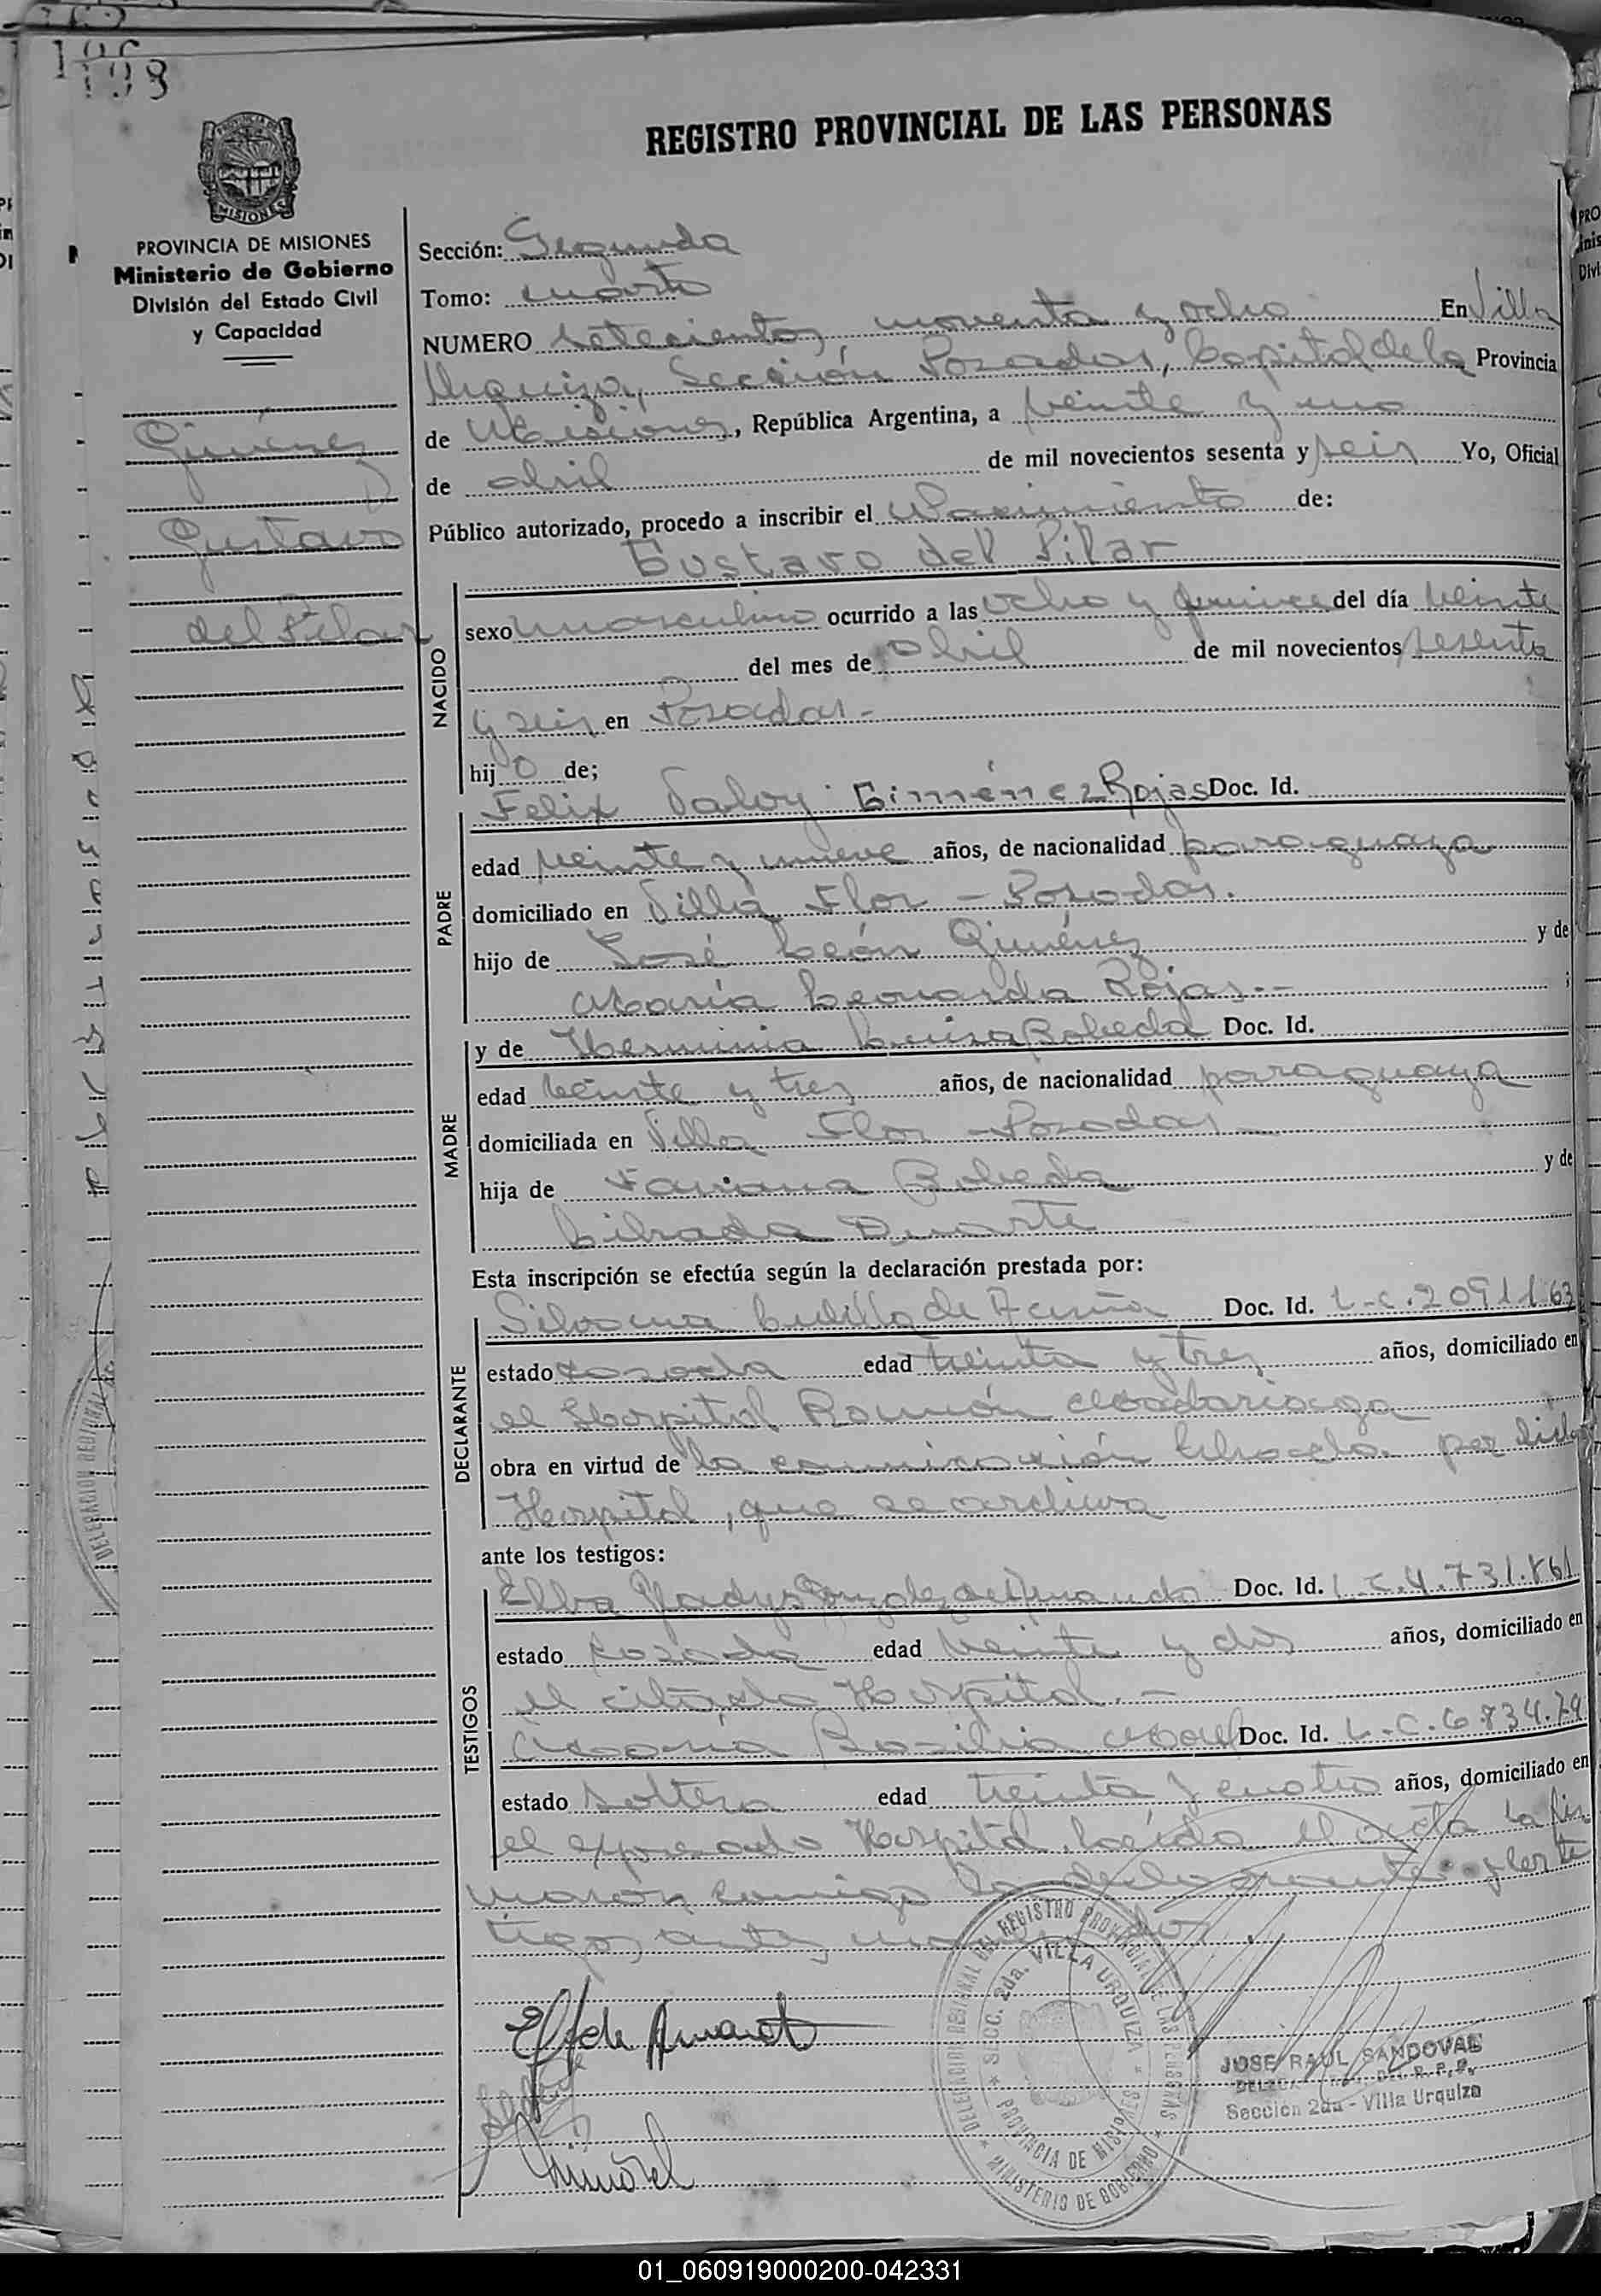 198
REGISTRO PROVINCIAL DE LAS PERSONAS
MISIONES
PROVINCIA DE MISIONES
Ministerio de Gobierno
División del Estado Civil
y Capacidad
Giménez
Gustavo
del Pilar
Sección: Segunda
Tomo: cuarto
NUMERO setecientos noventa y ocho En Villa
Urquiza, Sección Posadas, Capital de la Provincia
de Misiones, República Argentina, a veinte y uno
de abril de mil novecientos sesenta y seis Yo, Oficial
Público autorizado, procedo a inscribir el Nacimiento de:
Gustavo del Pilar
NACIDO
sexo masculino ocurrido a las ocho y quince del día veinte
del mes de abril de mil novecientos sesenta
y seis en Posadas.-
hijo de;
PADRE
Felix Giménez Rojas Doc. Id.
edad veinte y nueve años, de nacionalidad paraguaya
domiciliado en Villa Flor - Posadas.
hijo de José León Giménez y de
María Leonarda Rojas.-
MADRE
y de Herminia Luisa Bobeda Doc. Id.
edad veinte y tres años, de nacionalidad paraguaya
domiciliada en Villa Flor - Posadas
hija de Fabiana Bobeda y de
Librada Duarte
Esta inscripción se efectúa según la declaración prestada por:
DECLARANTE
Silvana de Acuña Doc. Id. L.C.2091163
estado casada edad treinta y tres años, domiciliado en
el Hospital Ramón Madariaga
obra en virtud de la comunicación librada por dicho
Hospital, que se archiva
ante los testigos:
TESTIGOS
Elba Gladys González de Amando Doc. Id. L.C.4.731.861
estado casada edad veinte y dos años, domiciliado en
el citado Hospital.-
María Basilia Doc. Id. L.C.6.834.79
estado soltera edad treinta y cuatro años, domiciliado en
el expresado Hospital. Leída el acta la fir
maron conmigo la declarante y los tes
tigos antes
DELEGACION REGIONAL DEL REGISTRO PROVINCIAL DE LAS PERSONAS
SECC. 2da. VILLA URQUIZA
PROVINCIA DE MISIONES
MINISTERIO DE GOBIERNO
JOSE RAUL SANDOVAL
Sección 2da - Villa Urquiza
DELEGACION REGIONAL
01_060919000200-042331